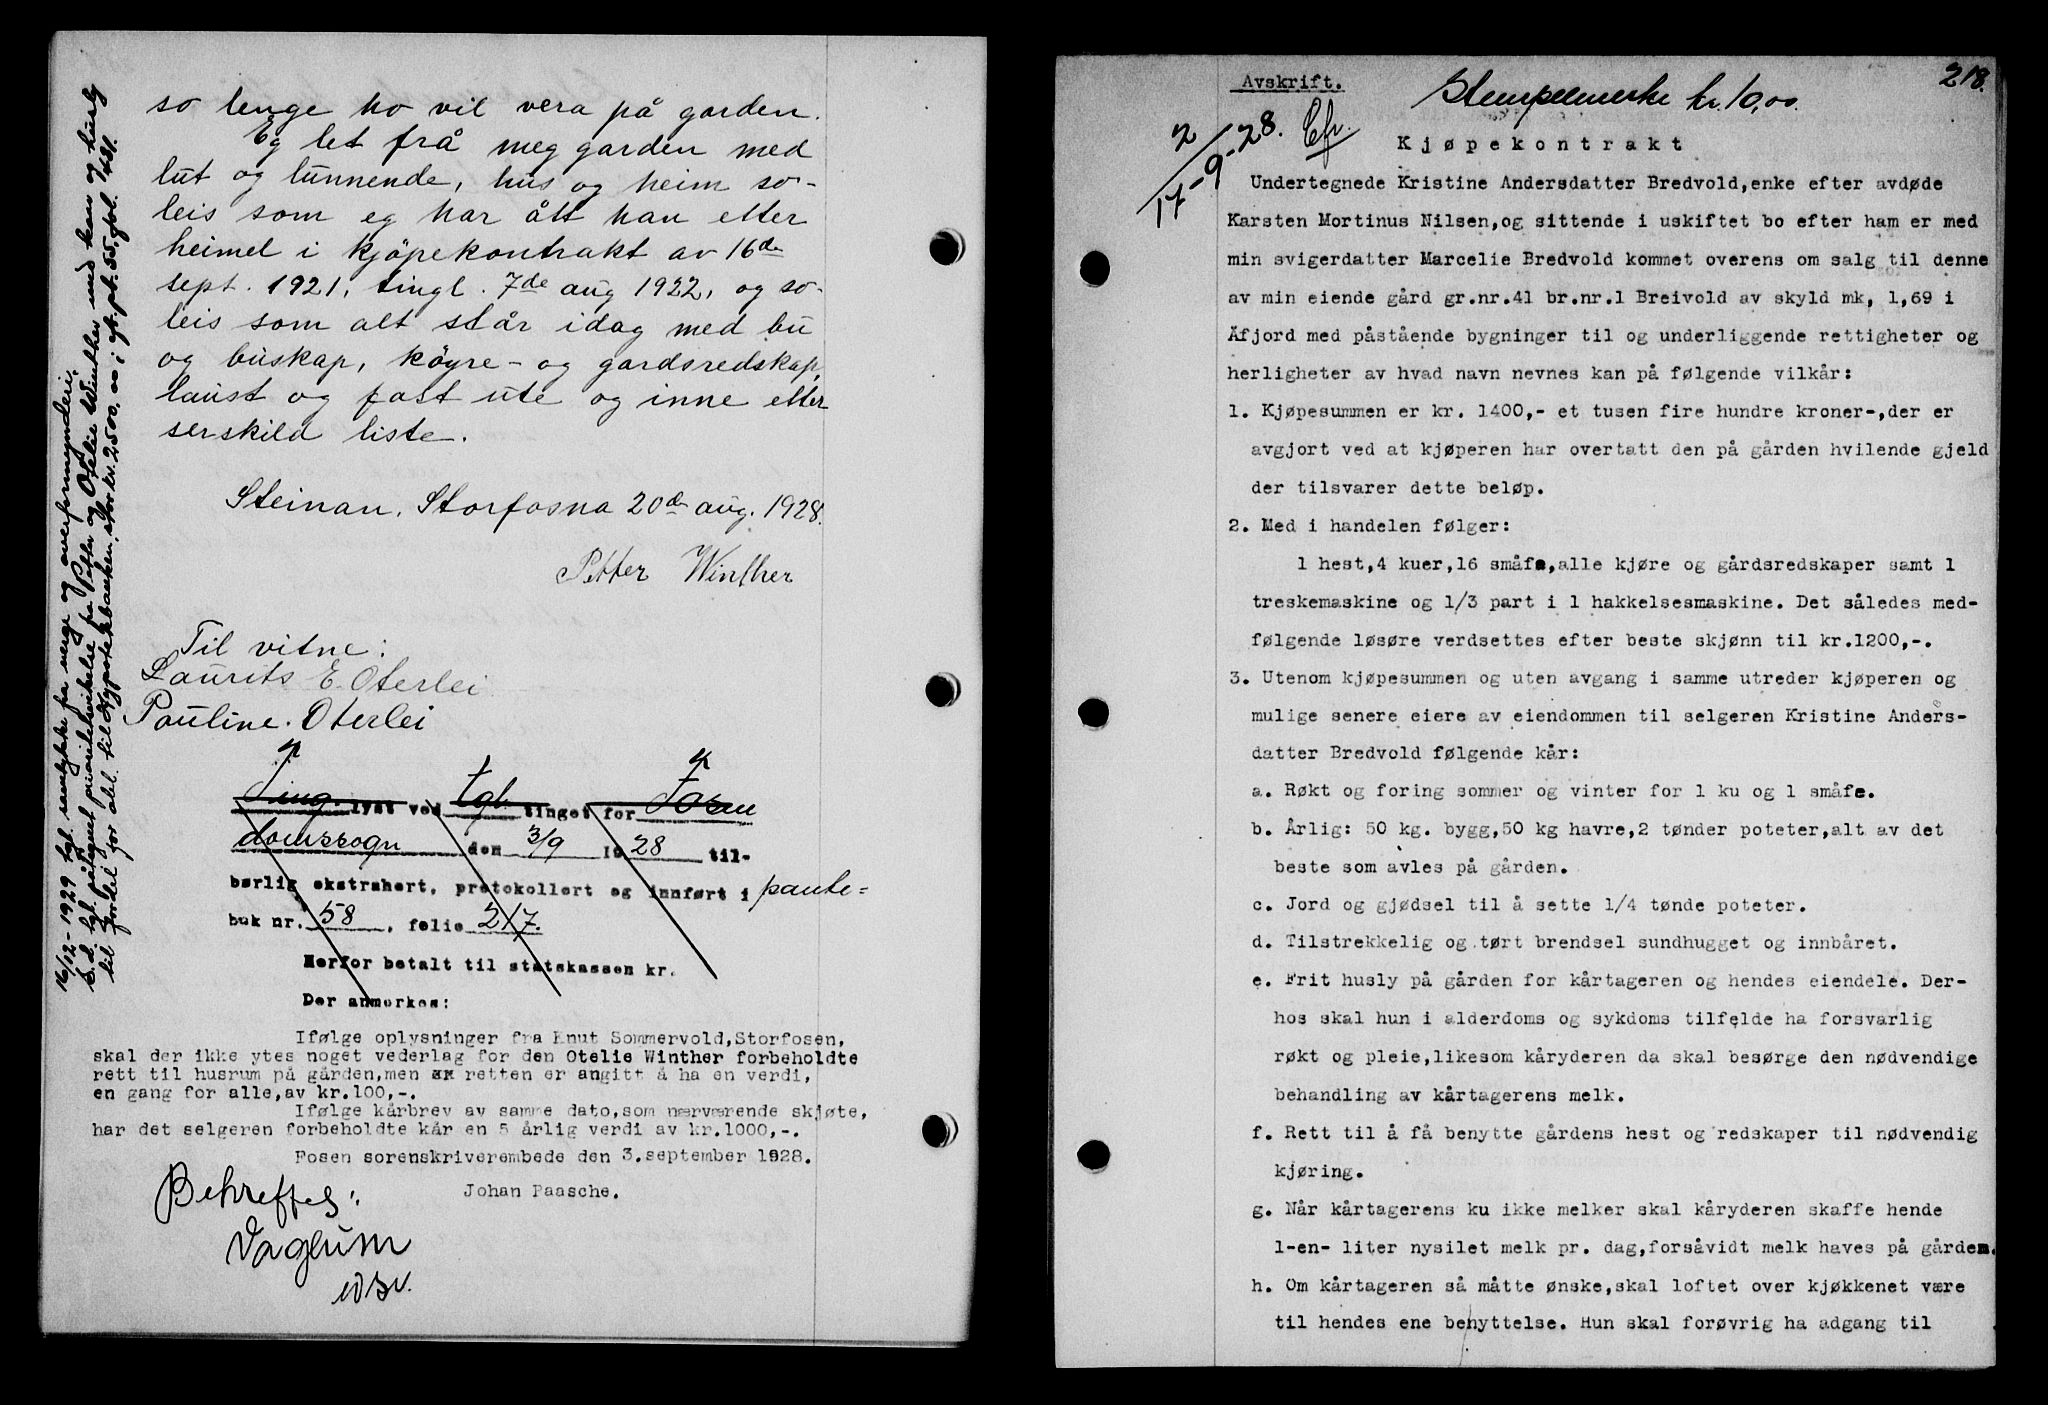 so lenge ho vil vera på garden.
Eg let frå meg garden med
lut og lunnende, hus og heim so-
leis som eg har ått han etter
heimel i kjöpekontrakt av 16de
sept. 1921, tingl. 7de aug 1922, og so-
leis som alt står idag med bu
og buskap, köyre- og gardsredskap,
laust og fast ute og inne etter
serskild liste.
Steinan, Storfosna 20de aug. 1928.
Petter Winther
Til vitne:
Laurits E. Oterlei
Pauline Oterlei
Ting lyst ved tgl. tinget for Fosen
domssogn den 3/9 1928 til-
børlig ekstrahert, protokollert og innført i pante-
buk nr. 58, folio 217.
Herfor betalt til statskassen kr.
Der anmerkes:
Ifølge oplysninger fra Knut Sommervold,Storfosen,
skal der ikke ytes noget vederlag for den Otelie Winther forbeholdte
rett til husrum på gården,men retten er angitt å ha en verdi,
en gang for alle,av kr.100,-.
Ifølge kårbrev av samme dato,som nærværende skjøte,
har det selgeren forbeholdte kår en 5 årlig verdi av kr.1000,-.
Fosen sorenskriverembede den 3.september 1928.
Johan Paasche.
Bekreftes:
Vaglum
16/12-1929 tgl. samtykke fra verge og overformynderi.
S.d. tgl. påtegnet prioritetsvikelse fra Petter og Otelie Winther med kår og husly
til fordel for obl. til Hypotekbanken, stor kr. 2500,00 i pb. 55, fol. 481.
218.
Avskrift.
Stempelmerke kr. 10,00.
2/17-9-28. Efr.
Kjøpekontrakt
Undertegnede Kristine Andersdatter Bredvold,enke efter avdøde
Karsten Mortinus Nilsen,og sittende i uskiftet bo efter ham er med
min svigerdatter Marcelie Bredvold kommet overens om salg til denne
av min eiende gård gr.nr.41 br.nr.1 Breivold av skyld mk, 1,69 i
Åfjord med påstående bygninger til og underliggende rettigheter og
herligheter av hvad navn nevnes kan på følgende vilkår:
1. Kjøpesummen er kr. 1400,- et tusen fire hundre kroner-,der er
avgjort ved at kjøperen har overtatt den på gården hvilende gjeld
der tilsvarer dette beløp.
2. Med i handelen følger:
1 hest,4 kuer,16 småfe,alle kjøre og gårdsredskaper samt 1
treskemaskine og 1/3 part i 1 hakkelsesmaskine. Det således med-
følgende løsøre verdsettes efter beste skjønn til kr.1200,-.
3. Utenom kjøpesummen og uten avgang i samme utreder kjøperen og
mulige senere eiere av eiendommen til selgeren Kristine Anders-
datter Bredvold følgende kår:
a. Røkt og foring sommer og vinter for 1 ku og 1 småfe.
b. Årlig: 50 kg. bygg,50 kg havre,2 tønder poteter,alt av det
beste som avles på gården.
c. Jord og gjødsel til å sette 1/4 tønde poteter.
d. Tilstrekkelig og tørt brendsel sundhugget og innbåret.
e. Frit husly på gården for kårtageren og hendes eiendele. Der-
hos skal hun i alderdoms og sykdoms tilfelde ha forsvarlig
røkt og pleie,likesom kåryderen da skal besørge den nødvendige
behandling av kårtagerens melk.
f. Rett til å få benytte gårdens hest og redskaper til nødvendig
kjøring.
g. Når kårtagerens ku ikke melker skal kåryderen skaffe hende
1-en- liter nysilet melk pr. dag,forsåvidt melk haves på gården.
h. Om kårtageren så måtte ønske,skal loftet over kjøkkenet være
til hendes ene benyttelse. Hun skal forøvrig ha adgang til